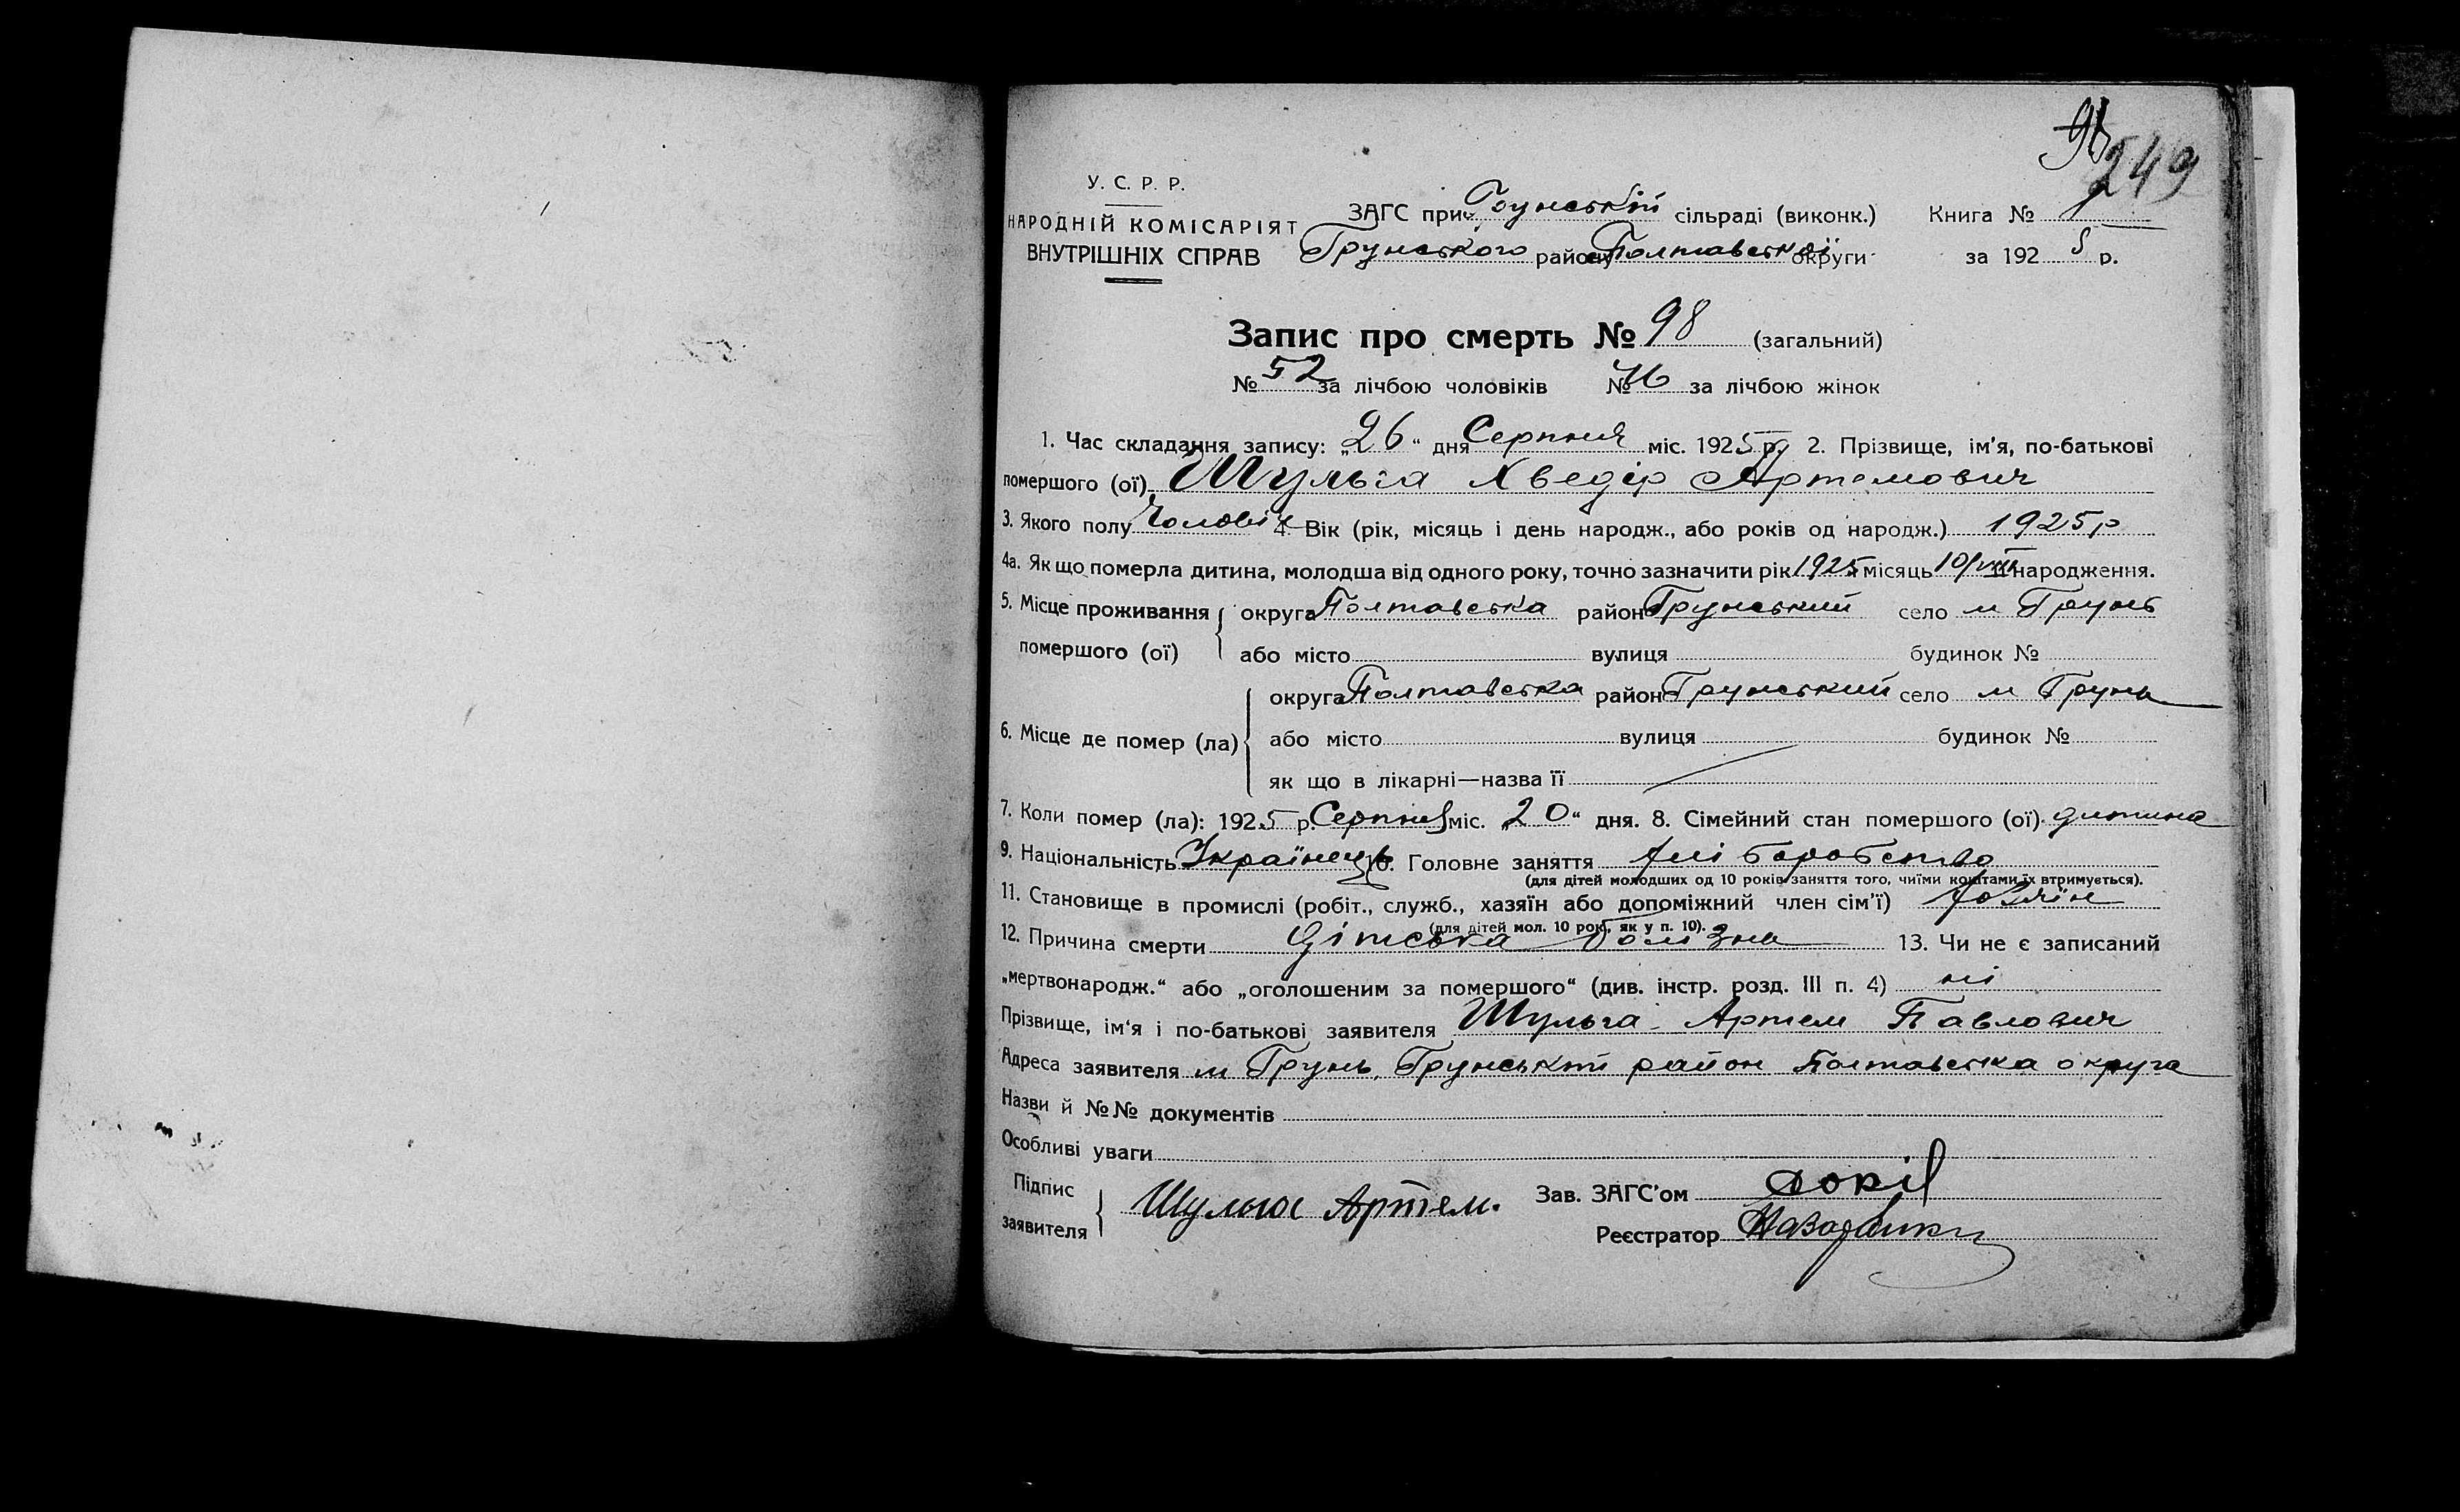 249
У. С. Р. Р.
НАРОДНІЙ КОМІСАРІЯТ
ВНУТРІШНІХ СПРАВ
ЗАГС при Грунській сільраді (виконк.) Книга №
Грунського району Полтавської округи за 1925 р.
Запис про смерть № 98 (загальний)
№ 52 за лічбою чоловіків № 46 за лічбою жінок
1. Час складання запису: „26“ дня Серпня міс. 1925 р. 2. Прізвище, ім'я, по-батькові
помершого (ої) Шульга Хведір Артемович
3. Якого полу Чоловік 4. Вік (рік, місяць і день народж., або років од народж.) 1925 р
4а. Як що померла дитина, молодша від одного року, точно зазначити рік 1925 місяць 10/VIII народження.
5. Місце проживання помершого (ої) { округа Полтавська район Грунський село м Грунь
або місто вулиця будинок №
6. Місце де помер (ла) { округа Полтавська район Грунський село м Грунь
або місто вулиця будинок №
як що в лікарні—назва її
7. Коли помер (ла): 1925 р. Серпня міс. „20“ дня. 8. Сімейний стан помершого (ої) дитина
9. Національність Українець 10. Головне заняття Хліборобство
(для дітей молодших од 10 років заняття того, чиїми коштами їх втримується).
11. Становище в промислі (робіт., служб., хазяїн або допоміжний член сім'ї) Хозяїн
(для дітей мол. 10 рок., як у п. 10).
12. Причина смерти Дітська Болізна 13. Чи не є записаний
„мертвонародж.“ або „оголошеним за помершого“ (див. інстр. розд. III п. 4) ні
Прізвище, ім'я і по-батькові заявителя Шульга Артем Павлович
Адреса заявителя м Грунь, Грунській район Полтавська округа
Назви й №№ документів
Особливі уваги
Підпис заявителя { Шульга Артем. Зав. ЗАГС'ом
Реєстратор